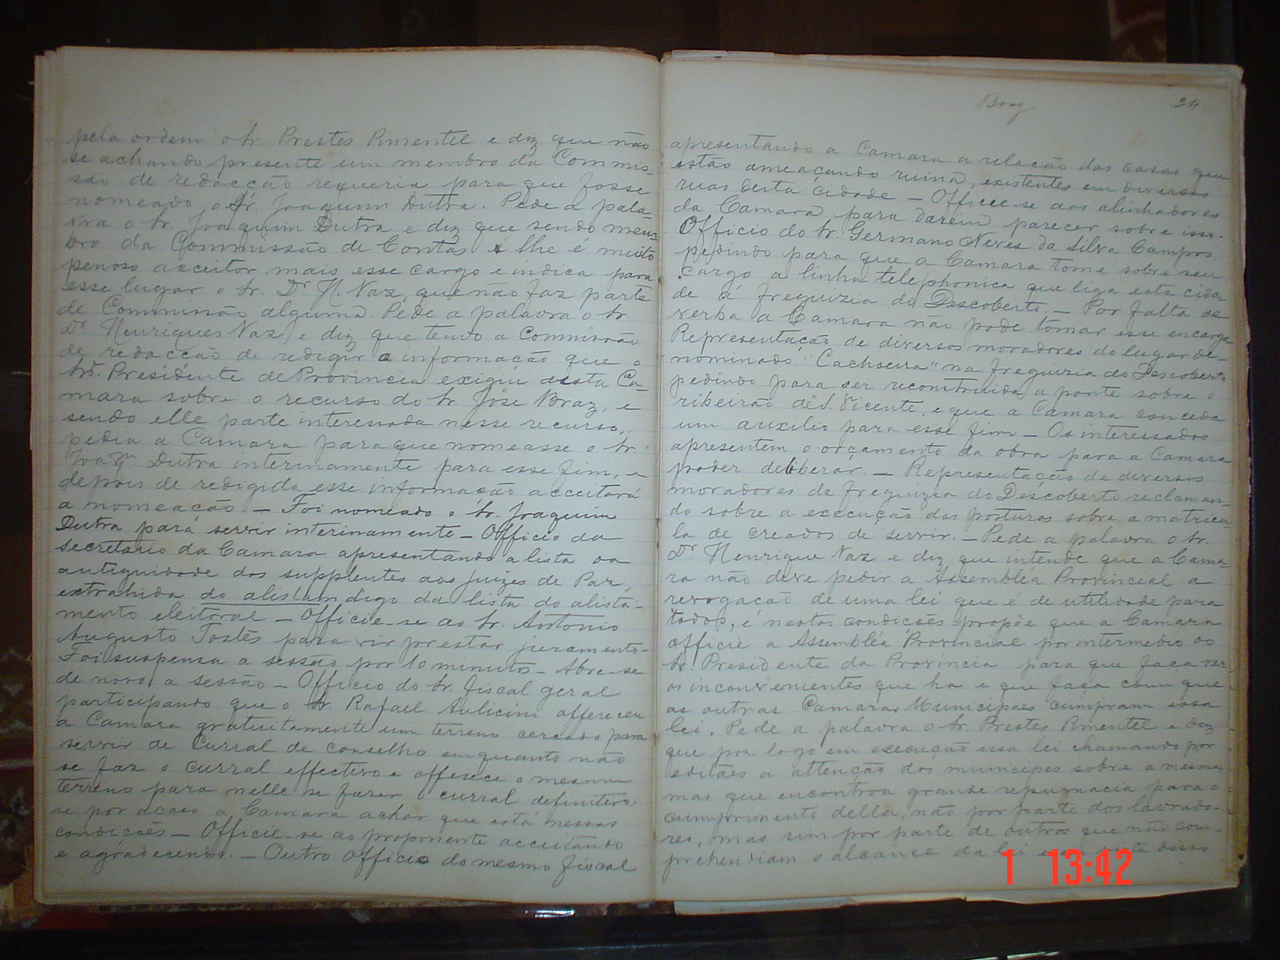 pela ordem o Sr. Prestes Pimentel e diz que não
se achando presente um membro da Commis-
são de redacção requeria para que fosse
nomeado o Sr. Joaquim Dutra. Pede a pala-
vra o Sr. Joaquim Dutra e diz que sendo mem-
bro da Commissão de Contas lhe é muito
penoso acceitar mais esse cargo e indica para
esse lugar o Sr. Dr. H. Vaz, que não faz parte
de Commissão alguma. Pede a palavra o Sr.
Dr. Henriques Vaz, e diz que tendo a Commissão
de redacção de redigir a informação que o
Presidente de Provincia exigiu desta Ca-
mara sobre o recurso do Sr. José Braz, e
sendo elle parte interessada nesse recurso,
pedia a Camara para que nomeasse o Sr.
Joaqm. Dutra interinamente para esse fim, e
depois de redigida esse informação acceitará
a nomeação — Foi nomeado o Sr. Joaquim
Dutra para servir interinamente — Officio do
secretario da Camara apresentando a lista da
antiguidade dos supplentes aos juizes de Paz,
extrahida do alistam digo da lista do alista-
mento eleitoral — Officie-se ao Sr. Antonio
Augusto Tostes para vir prestar juramento —
Foi suspensa a sessão por 10 minutos — Abre-se
de novo a sessão — Officio do Sr. fiscal geral
participando que o Sr. Rafael Aulicini offereceu
a Camara gratuitamente um terreno cercado para
servir de Curral de conselho emquanto não
se faz o curral effectivo e offerece o mesmo
terreno para nelle se fazer o curral definitivo
se por acaso a Camara achar que está nessas
condicções — Officie-se ao proponente acceitando
e agradecendo. — Outro officio do mesmo fiscal
Braz 24
apresentando a Camara a relação das casas que
estão ameaçando ruina, existentes em diversas
ruas desta cidade — Officie-se aos alinhadores
da Camara, para darem parecer sobre isso.
Officio do Sr. Germano Neves da Silva Campos
pedindo para que a Camara tome sobre seu
cargo a linha telephonica que liga esta cida-
de á freguizia do Descoberto — Por falta de
verba a Camara não pode tomar esse encargo
Representação de diversos moradores do lugar de-
nominado "Cachoeira" na freguizia do Descoberto
pedindo para ser reconstruida a ponte sobre o
ribeirão de S. Vicente, e que a Camara conceda
um auxilio para esse fim — Os interessados
apresentem o orçamento da obra para a Camara
poder deliberar. — Representação de diversos
moradores da freguizia do Descoberto reclaman-
do sobre a execução das posturas sobre a matricu-
la de creados de servir. — Pede a palavra o Sr.
Dr. Henrique Vaz e diz que intende que a Cama-
ra não deve pedir a Assembléa Provincial a
revogação de uma lei que é de utilidade para
todos, e nestas condicões propõe que a Camara
officie a Assembléa Provincial por intermedio do
Sr. Presidente da Provincia para que faça ver
os inconvenientes que ha e que faça com que
as outras Camaras Municipaes cumpram essa
lei. Pede a palavra o Sr. Prestes Pimentel e diz
que poz logo em execução essa lei chamando por
editáes a attenção dos municipes sobre a mesma
mas que encontrou grande repugnacia para o
cumprimento della, não por parte dos lavrado-
res, mas sim por parte de outros que não com-
prehendiam o alcance da lei
1 13:42